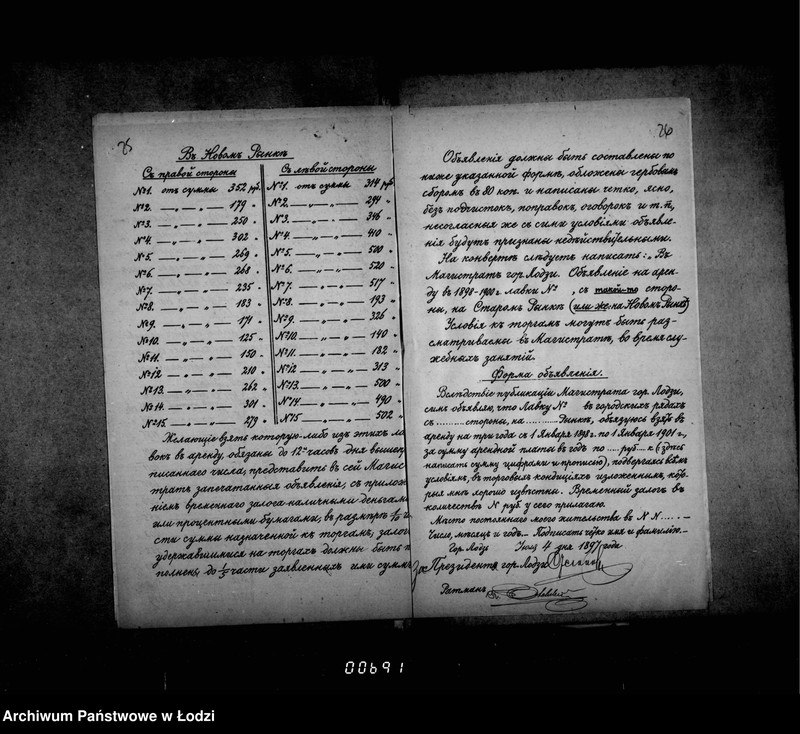 Въ Новомъ Рынкѣ
Съ правой стороны
№1. отъ суммы 352 руб.
№2. —„—„— 179 „
№3. —„—„— 250 „
№4. —„—„— 302 „
№5. —„—„— 269 „
№6. —„—„— 268 „
№7. —„—„— 235 „
№8. —„—„— 183 „
№9. —„—„— 171 „
№10. —„—„— 125 „
№11. —„—„— 150 „
№12. —„—„— 210 „
№13. —„—„— 262 „
№14. —„—„— 301 „
№15. —„—„— 279 „
Съ лѣвой стороны
№1. отъ суммы 314 руб.
№2. —„—„— 244 „
№3. —„—„— 346 „
№4. —„—„— 410 „
№5. —„—„— 500 „
№6. —„—„— 520 „
№7. —„—„— 517 „
№8. —„—„— 193 „
№9. —„—„— 326 „
№10. —„—„— 140 „
№11. —„—„— 182 „
№12 —„—„— 313 „
№13. —„—„— 500 „
№14 —„—„— 490 „
№15 —„—„— 502 „
Желающіе взять которую-либо изъ этихъ ла
вокъ въ аренду, обязаны до 12 часовъ дня вышеу
писаннаго числа, представить въ сей Магис
тратъ запечатанныя объявленія, съ приложе
ніемъ временнаго залога наличными деньгами
или процентными бумагами, въ размѣрѣ 1/10 ч
сти суммы назначенной къ торгамъ, залог
удержавшимися на торгахъ должны быть п
полнены до 1/5 части заявленныхъ ими суммъ
76
Объявленія должны быть составлены по
ниже указанной формѣ, обложены гербовымъ
сборомъ въ 80 коп. и написаны четко, ясно,
безъ подчистокъ, поправокъ, оговорокъ и т. п.,
несогласныя же съ сими условіями объявле-
нія будутъ признаны недѣйствительными.
На конвертѣ слѣдуетъ написать: „Въ
Магистратъ гор. Лодзи. Объявленіе на арен-
ду въ 1898-1900 г. лавки № , съ такой-то сторо-
ны, на Старомъ Рынкѣ (или же на Новомъ Рынкѣ)
Условія къ торгамъ могутъ быть раз-
сматриваемы въ Магистратѣ, во время слу-
жебныхъ занятій.
Форма объявленія.
Вслѣдствіе публикаціи Магистрата гор. Лодзи,
симъ объявляю, что Лавку № въ городскихъ рядахъ
съ ........ стороны, на ........ Рынкѣ, обязуюсь взять въ
аренду на три года съ 1 Января 1898 г. по 1 Января 1901 г.,
за сумму арендной платы въ годъ по ..... руб. к. (здѣсь
написать сумму цифрами и прописью), подвергаясь всѣмъ
условіямъ, въ торговыхъ кондиціяхъ изложеннымъ, кото-
рыя мнѣ хорошо извѣстны. Временный залогъ въ
количествѣ N руб. у сего прилагаю.
Мѣсто постояннаго моего жительства въ N N .....
Число, мѣсяцъ и годъ... Подписать чётко имя и фамилію.—
Гор. Лодзь Іюля 4 дня 1897 года
За Президента гор. Лодзи
Ратманъ
00691
Archiwum Państwowe w Łodzi